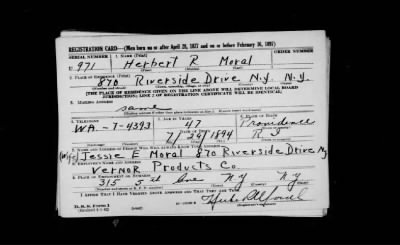 REGISTRATION CARD—(Men born on or after April 28, 1877 and on or before February 16, 1897)
SERIAL NUMBER 1. NAME (Print) ORDER NUMBER
U 971 Herbert R Moral
(First) (Middle) (Last)
2. PLACE OF RESIDENCE (Print)
870 Riverside Drive N.Y. N.Y.
(Number and street) (Town, township, village, or city) (County) (State)
[THE PLACE OF RESIDENCE GIVEN ON THE LINE ABOVE WILL DETERMINE LOCAL BOARD
JURISDICTION; LINE 2 OF REGISTRATION CERTIFICATE WILL BE IDENTICAL]
3. MAILING ADDRESS
same
4. TELEPHONE 5. AGE IN YEARS 6. PLACE OF BIRTH
WA.-7-4393 47 Providence
DATE OF BIRTH
7/24/1894 R I
7. NAME AND ADDRESS OF PERSON WHO WILL ALWAYS KNOW YOUR ADDRESS
(wife) Jessie E Moral 870 Riverside Drive Ny
8. EMPLOYER'S NAME AND ADDRESS
Vernor Products Co.
9. PLACE OF EMPLOYMENT OR BUSINESS
315 5th Ave N Y N Y
I AFFIRM THAT I HAVE VERIFIED ABOVE ANSWERS AND THAT THEY ARE TRUE.
D. S. S. Form 1